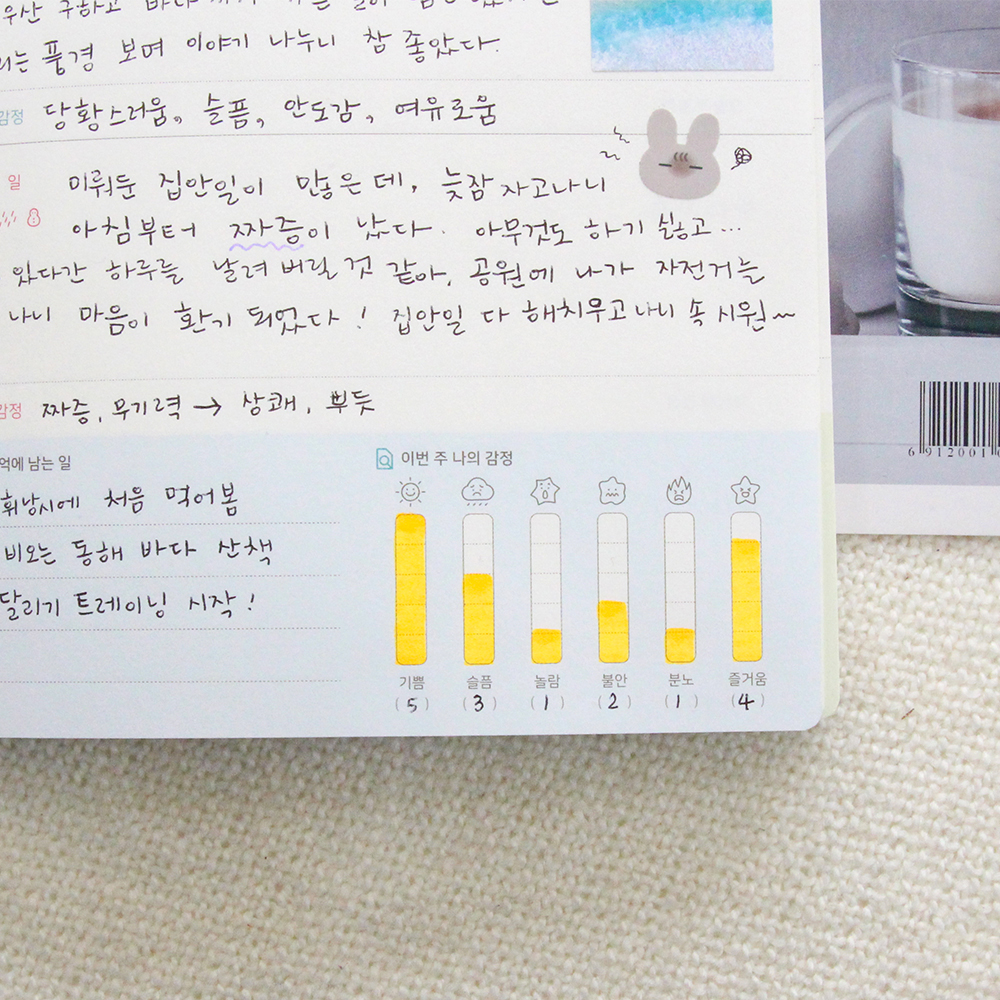 우산 구하고 바다
풍경 보며 이야기 나누니 참 좋았다.
감정 당황스러움, 슬픔, 안도감, 여유로움
일 미뤄둔 집안일이 많은데, 늦잠 자고나니
아침부터 짜증이 났다. 아무것도 하기 싫고...
있다간 하루를 날려버릴 것 같아, 공원에 나가 자전거를
나니 마음이 환기 되었다! 집안일 다 해치우고나니 속 시원~
감정 짜증, 무기력 → 상쾌, 뿌듯
억에 남는 일
휘낭시에 처음 먹어봄
비오는 동해 바다 산책
달리기 트레이닝 시작!
이번 주 나의 감정
기쁨 슬픔 놀람 불안 분노 즐거움
(5) (3) (1) (2) (1) (4)
6 912001